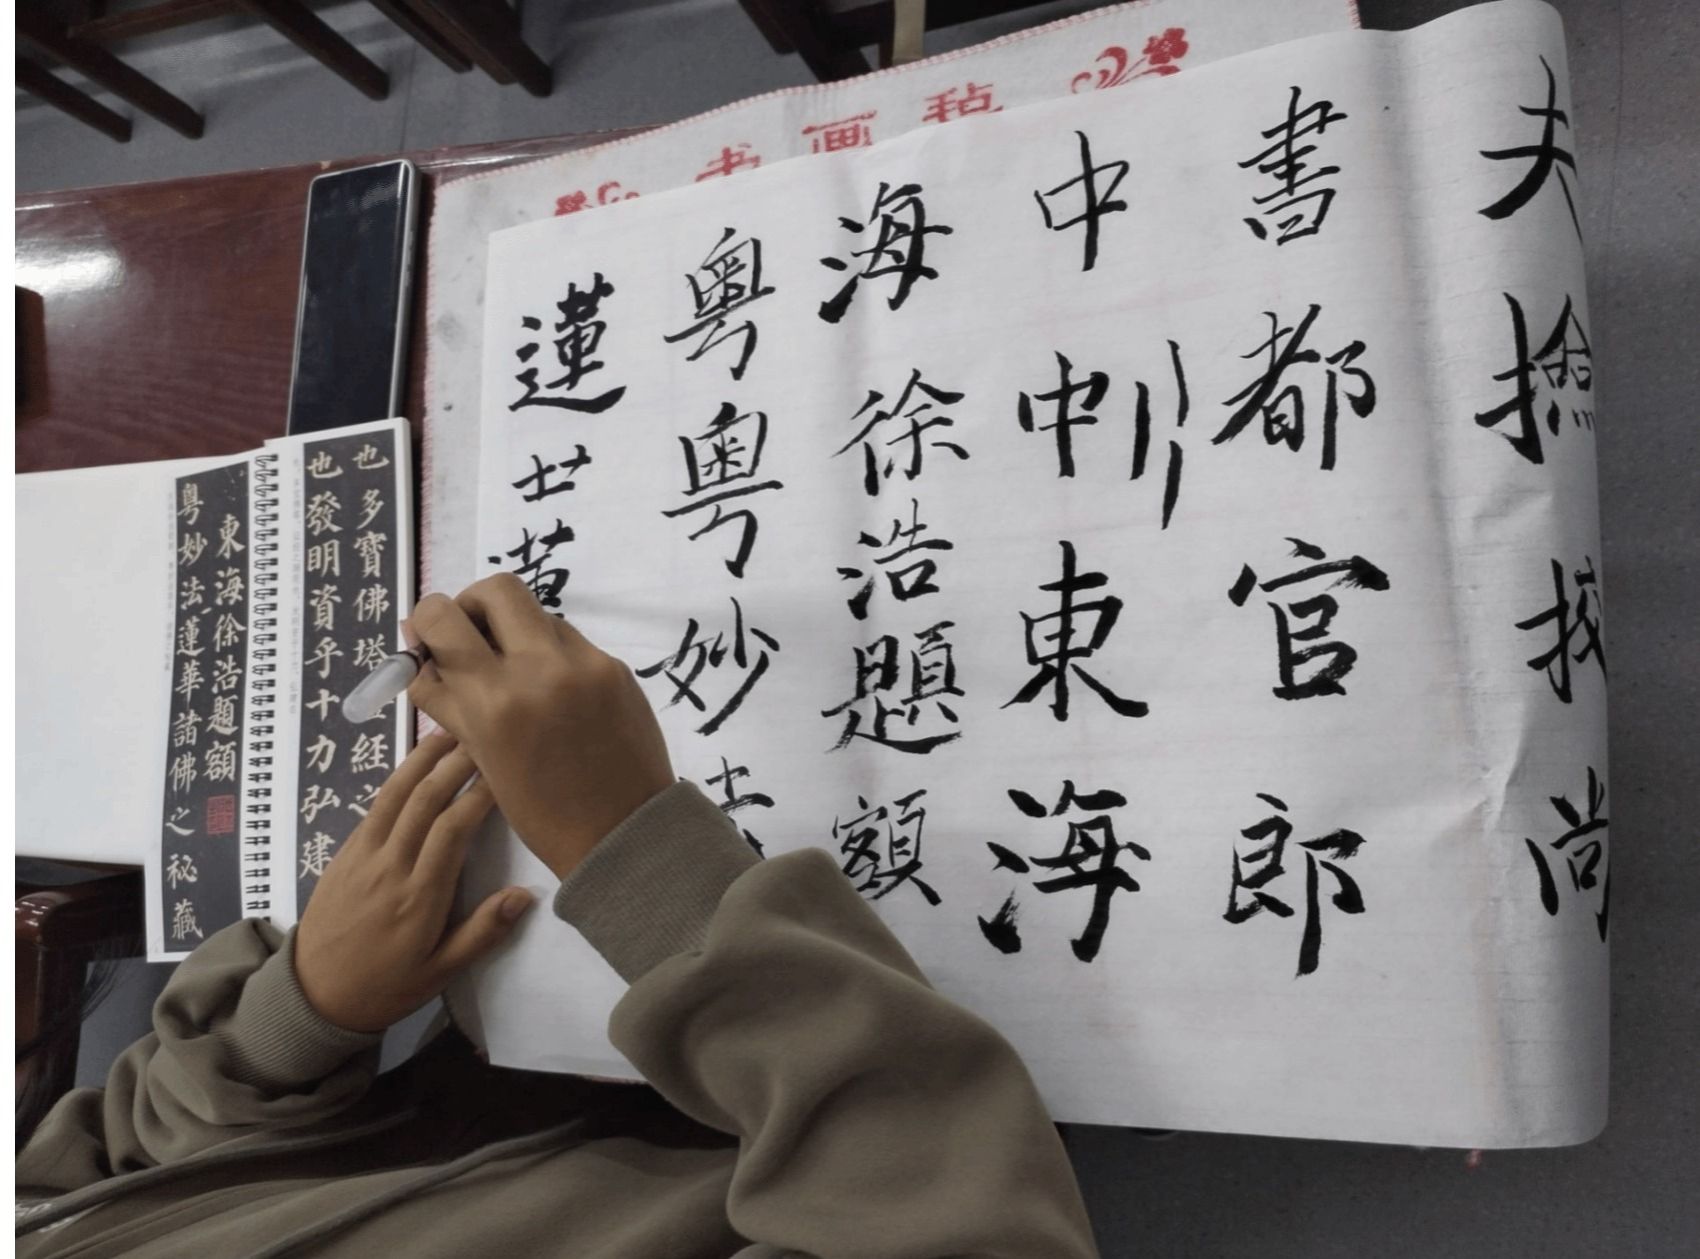 书画毡
夫撿挍尚
書都官郎
中中刂東海
海徐浩題額
粤粤妙法
蓮艹士蓮
也多寶佛塔經之
也發明資乎十力弘建
東海徐浩題額
粤妙法蓮華諸佛之秘藏